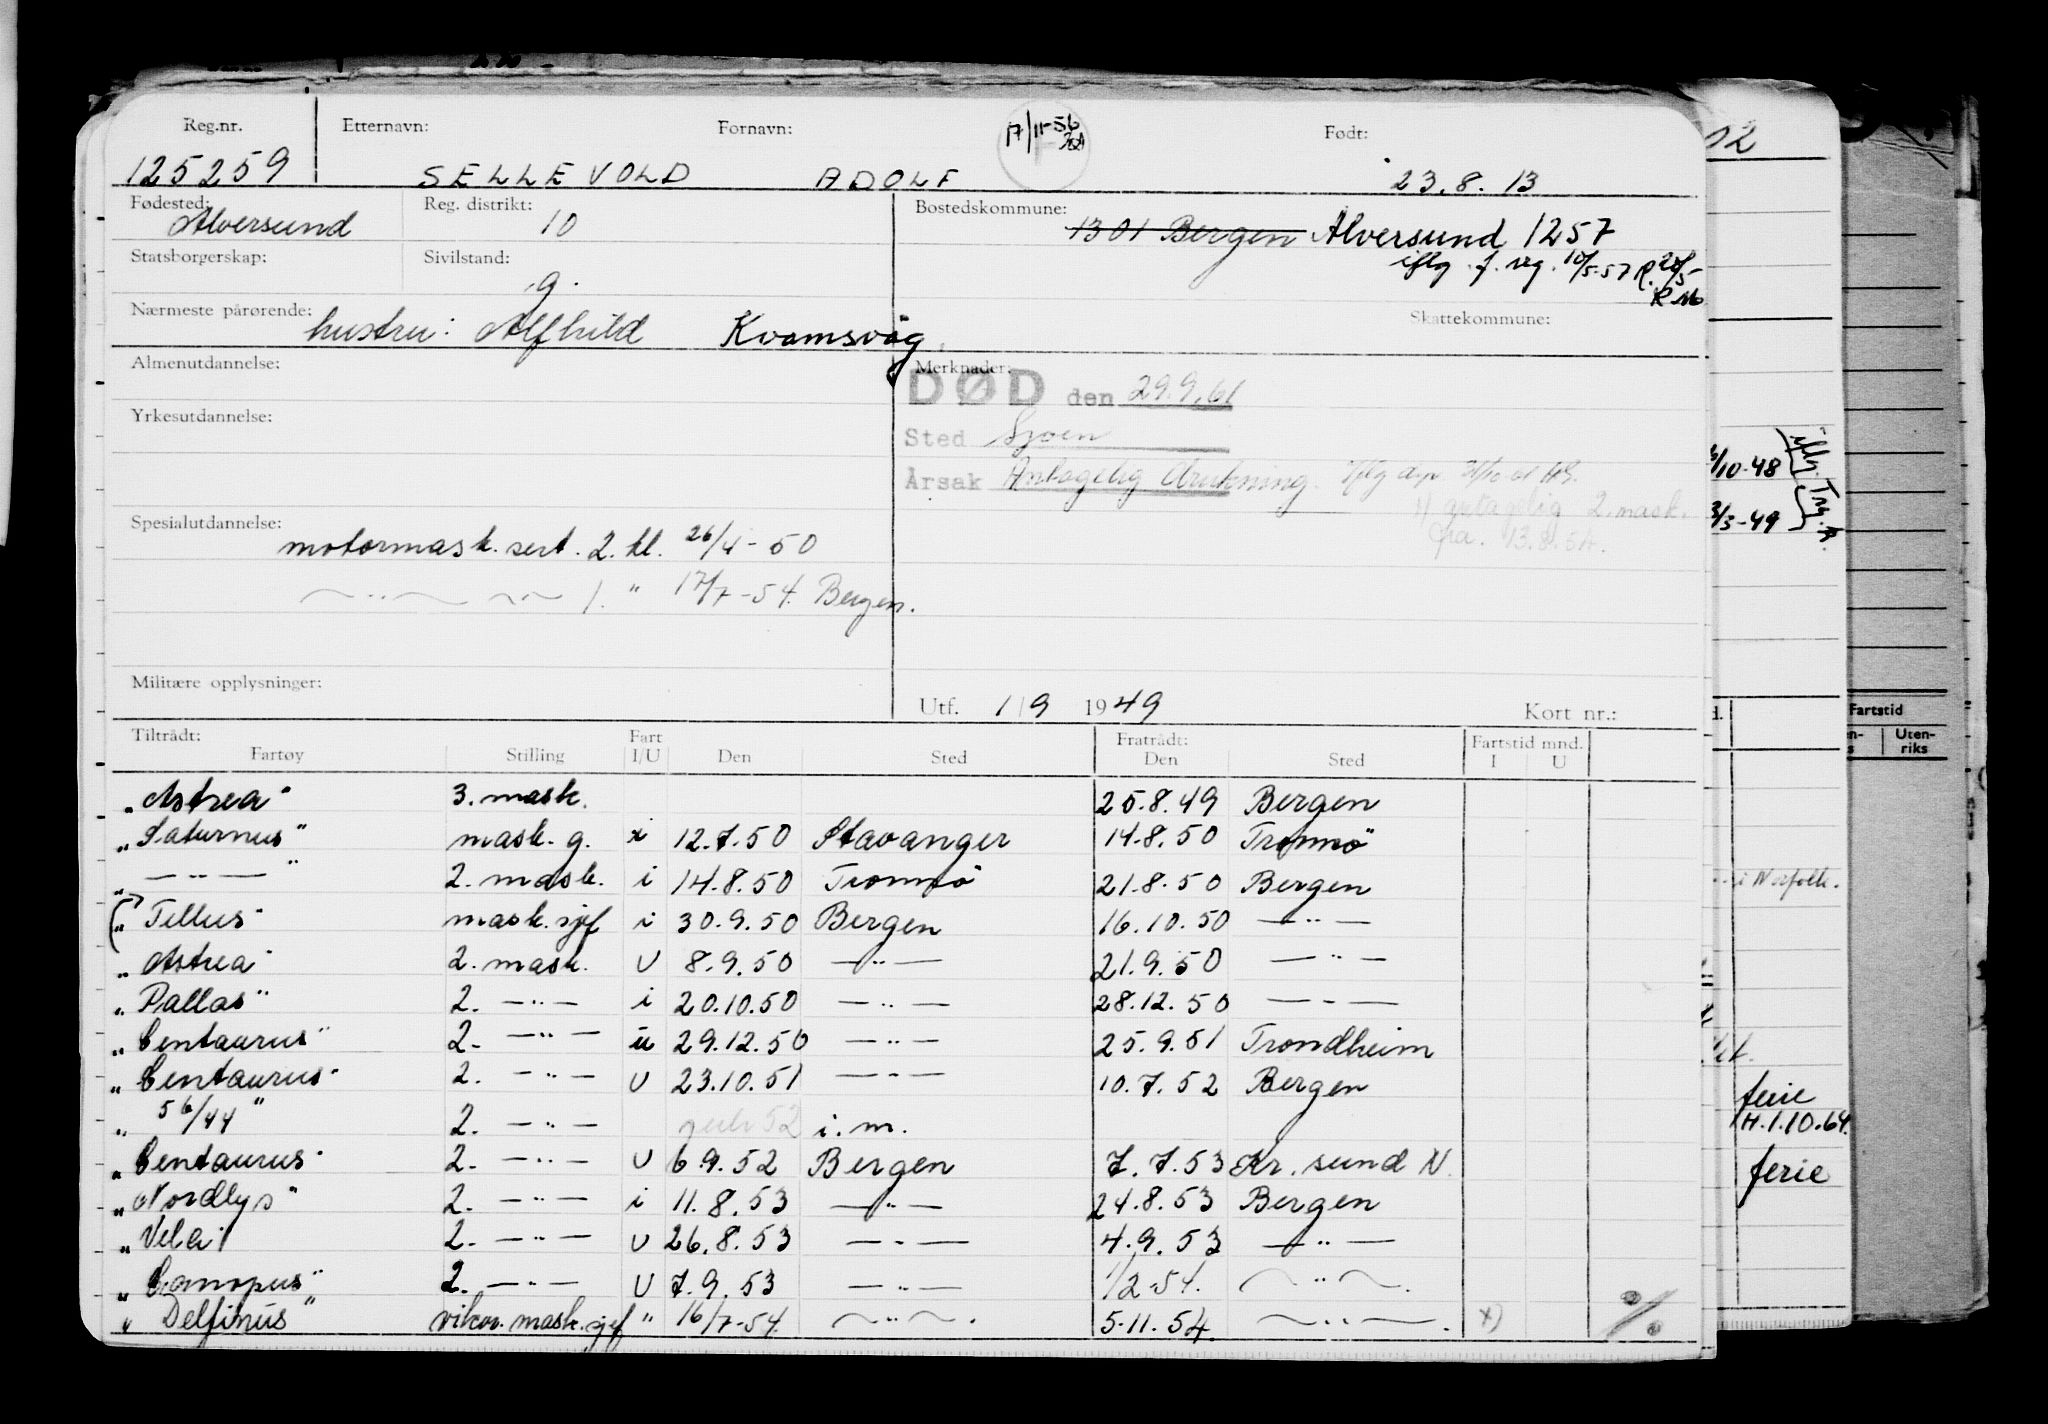 Reg.nr. Etternavn: Fornavn: 17/11-56 Født:
125259 SELLEVOLD ADOLF 23.8.13
Fødested: Alversund Reg. distrikt: 10 Bostedskommune: 1301 Bergen Alversund 1257
iflg. f. reg. 10/5-57 R.
Statsborgerskap: Sivilstand: g.
Nærmeste pårørende: hustru: Alfhild Kvamsvåg Skattekommune:
Almenutdannelse: Merknader:
DØD den 29.9.61
Yrkesutdannelse:
Sted Sjøen
Årsak Antagelig drukning. Iflg
antagelig 2. mask.
fra 13.8.54.
Spesialutdannelse:
motormask. sert. 2. kl. 26/4-50
— " — — " — 1. " 17/7-54. Bergen.
Militære opplysninger:
Utf. 1/9 1949 Kort nr.:
Tiltrådt: Fart Fratrådt: Fartstid mnd.
Fartøy Stilling I/U Den Sted Den Sted I U
"Astrea" 3. mask. 25.8.49 Bergen
"Saturnus" mask. g. i 12.7.50 Stavanger 14.8.50 Tromsö
" — " — " 2. mask. i 14.8.50 Tromsö 21.8.50 Bergen
"Tellus" mask. sjef i 30.9.50 Bergen 16.10.50 — " —
"Astrea" 2. mask. U 8.9.50 — " — 21.9.50 — " —
"Pallas" 2. — " — i 20.10.50 — " — 28.12.50 — " —
"Centaurus" 2. — " — u 29.12.50 — " — 25.9.51 Trondheim
"Centaurus" 2. — " — U 23.10.51 — " — 10.7.52 Bergen
" 56/44 " 2. — " — 52 i.m.
"Centaurus" 2. — " — U 6.9.52 Bergen 7.7.53 Kr. sund N.
"Nordlys" 2. — " — i 11.8.53 — " — 24.8.53 Bergen
"Vela" 2. — " — U 26.8.53 — " — 4.9.53 — " —
"Canopus" 2. — " — U 7.9.53 — " — 1/2-54. — " —.
"Delfinus" vikar. mask. sjef " 16/7-54. — " —. 5-11.54 — " —. x)
02
/10-48
3/3-49
iflg.
Fartstid
Uten-
riks
i Norfolk.
ferie
H.1.10.64.
ferie